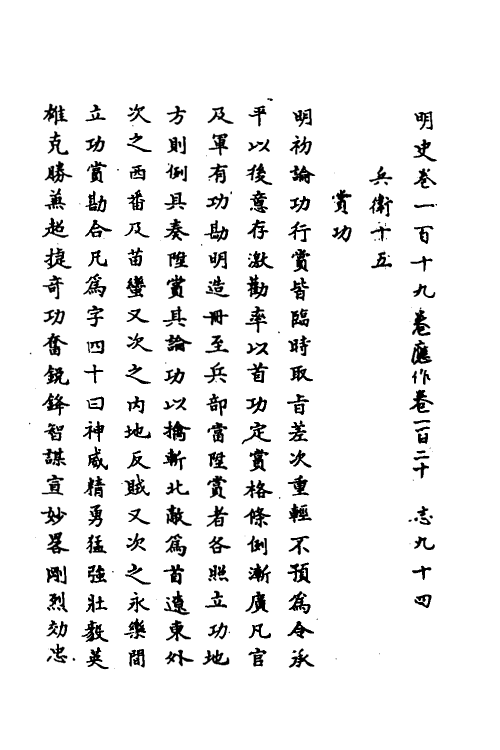 明史卷一百十九卷應作卷一百二十　志九十四
兵衛十五
賞功
明初論功行賞皆臨時取旨差次重輕不預爲令承
平以後意存激勸率以首功定賞格條例漸廣凡官
及軍有功勘明造冊至兵部當陞賞者各照立功地
方則例具奏陞賞其論功以擒斬北敵爲首遼東外
次之西番及苗蠻又次之内地反賊又次之永樂間
立功賞勘合凡爲字四十曰神威精勇猛強壯毅英
雄克勝兼超捷奇功奮銳鋒智謀宣妙畧剛烈効忠